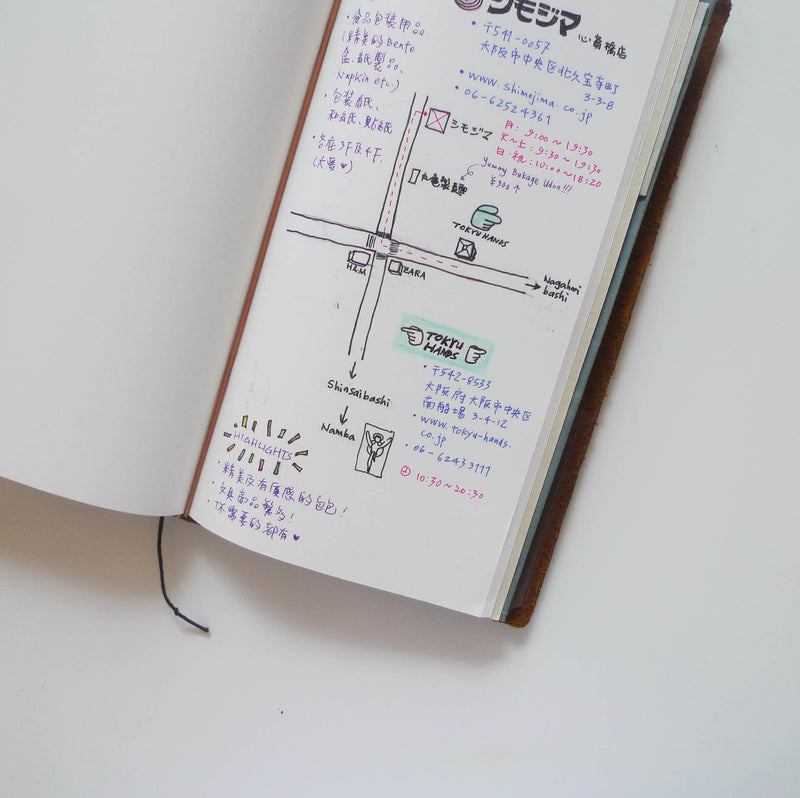 シモジマ 心斎橋店
・〒541-0057
大阪市中央区北久宝寺町
3-3-8
・www.shimojima.co.jp
・06-62524361
月: 9:00～19:30
火～土: 9:30～19:30
日・祝: 10:00～18:20
・食品包裝用品
(精美的Bento
盒、紙製品、
Napkin etc.)
・包裝紙、
和紙、貼紙
・各在3F及4F.
(大愛♥)
シモジマ
丸亀製麺
Yummy Bukage Udon!!!
¥300↑
TOKYU HANDS
H&M
ZARA
Nagahori
bashi
Shinsaibashi
Namba
TOKYU
HANDS
・〒542-8533
大阪府大阪市中央区
南船場 3-4-12
・www.tokyu-hands.
co.jp
・06-62433111
10:30～20:30
HIGHLIGHTS
・精美及有質感的包包!
・文具商品繁多!
你需要的都有♥